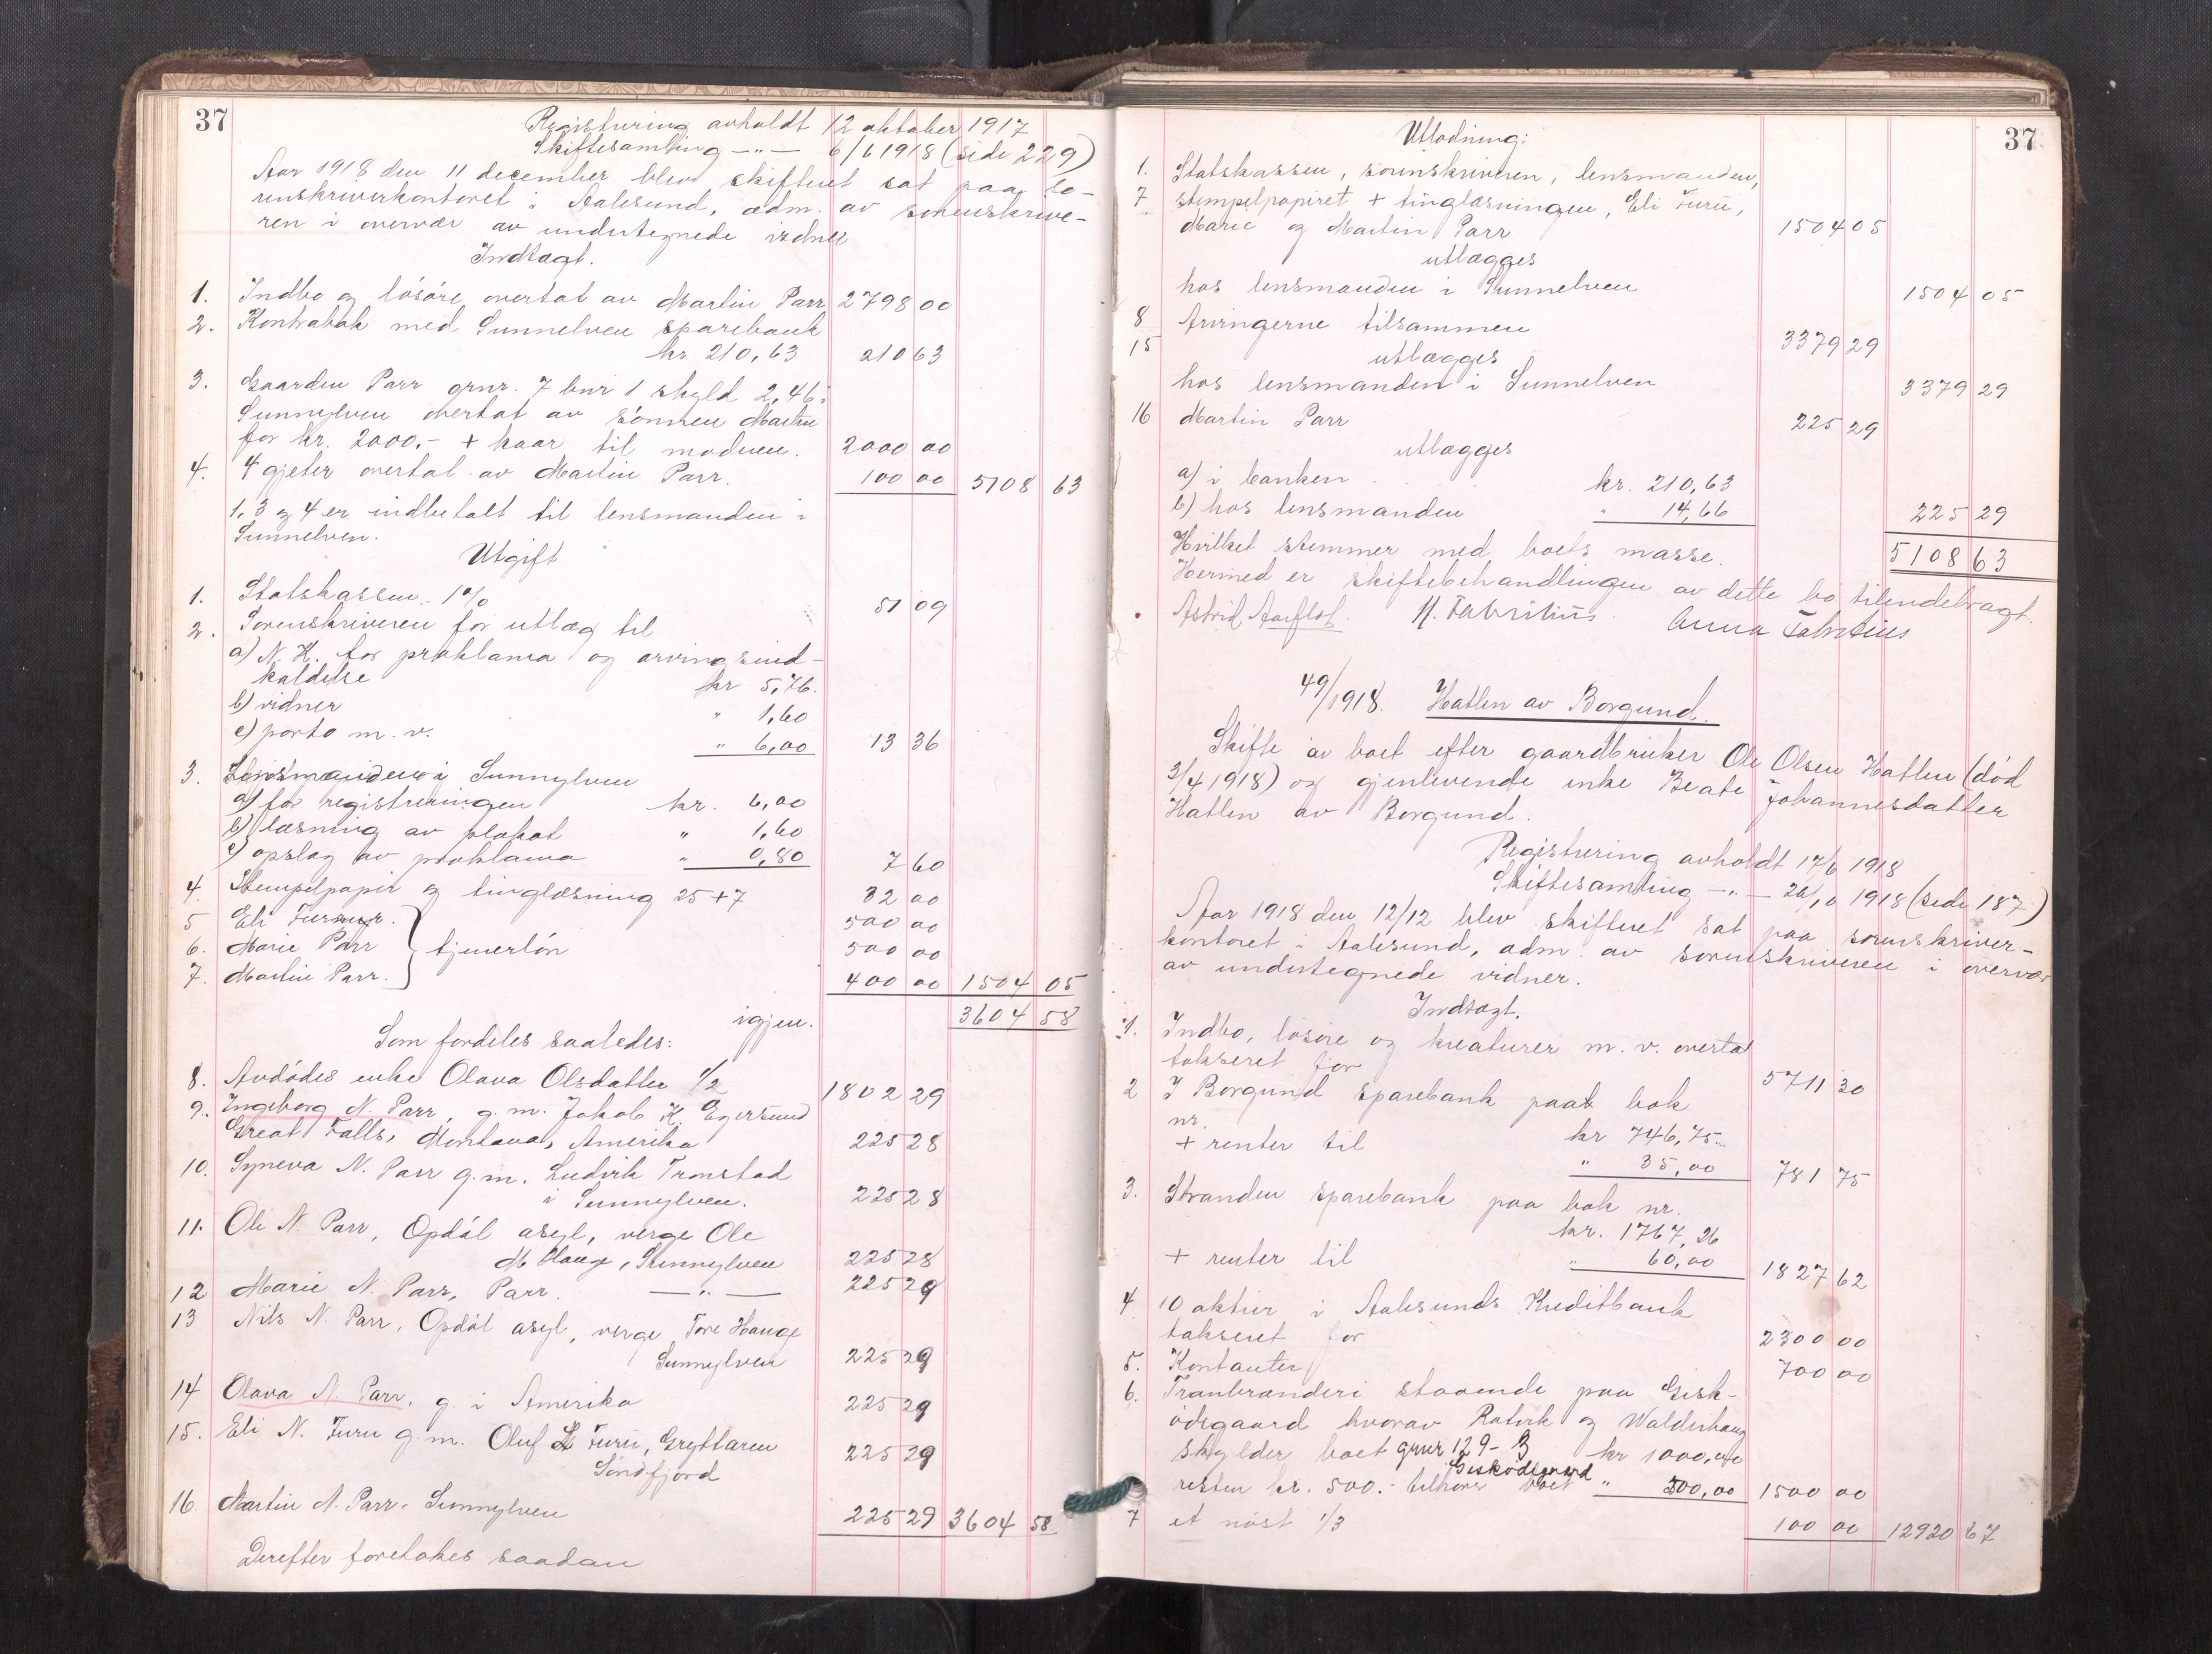 37
Registrering avholdt 12 oktober 1917
Skiftesamling —"— 6/6 1918 (side 229)
Aar 1918 den 11 december blev skifteret sat paa so-
renskriverkontoret i Aalesund, adm. av sorenskrive-
ren i overvær av undertegnede vidner
Indtægt.
1. Indbo og løsøre overtat av Martin Parr 2798 00
2. Kontrabok med Sunnelven sparebank
kr 210,63 210 63
3. Gaarden Parr grnr. 7 bnr 1 skyld 2,46 i
Sunnylven overtat av sønnen Martin
for kr. 2000,- + kaar til moderen. 2000 00
4. 4 gjeter overtat av Martin Parr. 100 00 5108 63
1, 3 og 4 er indbetalt til lensmanden i
Sunnelven.
Utgift
1. Statskassen 1% 51 09
2. Sorenskriveren for utlæg til
a) N. K. for proklama og arvingsind-
kaldelse kr 5,76.
b) vidner " 1,60
c) porto m. v. " 6,00 13 36
3. Lensmanden i Sunnylven
a) for registreringen kr. 6,00
b) læsning av plakat " 1,60
c) opslag av proklama " 0,80 7 60
4. Stempelpapir og tinglæsning 25+7 32 00
5 Eli Furu 500 00
6. Marie Parr } tjenerløn 500 00
7. Martin Parr. 400 00 1504 05
igjen. 3604 58
Som fordeles saaledes:
8. Avdødes enke Olava Olsdatter 1/2 1802 29
9. Ingeborg N. Parr, g. m. Jakob K. Egersund
Great Falls, Montava, Amerika 225 28
10. Syneva N. Parr g. m. Ludvik Tronstad
i Sunnylven. 225 28
11. Ole N. Parr, Opdøl asyl, verge Ole
M Hauge, Sunnylven 225 28
12 Marie N. Parr, Parr. —"— 225 29
13 Nils N. Parr, Opdøl asyl, verge Tore Hauge
Sunnylven 225 29
14 Olava N. Parr, g. i Amerika 225 29
15. Eli N. Furu g. m. Oluf L Furu, Gryttaren
Søndfjord 225 29
16. Martin N. Parr. Sunnylven 225 29 3604 58
Derefter foretokes saadan
37
Utlodning:
1. Statskassen, sorenskriveren, lensmanden,
7 stempelpapiret + tinglæsningen, Eli Furu,
Marie og Martin Parr 1504 05
utlægges
hos lensmanden i Sunnelven 1504 05
8 Arvingerne tilsammen
15 3379 29
utlægges
hos lensmanden i Sunnelven 3379 29
16 Martin Parr 225 29
utlægges
a) i banken kr. 210,63
b) hos lensmanden " 14,66 225 29
Hvilket stemmer med boets masse. 5108 63
Hermed er skiftebehandlingen av dette bo tilendebragt.
Astrid Aarflot. H. Fabritius. Anna Fabritius
49/1918. Hatlen av Borgund.
Skifte av boet efter gaardbruker Ole Olsen Hatlen (død
3/4 1918) og gjenlevende enke Beate Johannesdatter
Hatlen av Borgund.
Registrering avholdt 17/6 1918
Skiftesamling —"— 26/10 1918 (side 187)
Aar 1918 den 12/12 blev skifteret sat paa sorenskriver-
kontoret i Aalesund, adm. av sorenskriveren i overvær
av undertegnede vidner.
Indtægt.
1. Indbo, løsøre og kreaturer m. v. overtat
takseret for 5711 30
2 I Borgund sparebank paa bok
nr. kr 746,75
+ renter til " 35,00 781 75
3. Stranden sparebank paa bok nr.
kr. 1767,26
+ renter til " 60,00 1827 62
4 10 aktier i Aalesunds Kreditbank
takseret for 2300 00
5. Kontanter 700 00
6. Tranbrænderi staaende paa Gisk-
ødegaard hvorav Rotvik og Walderhaug
skylder boet grnr 129-3 kr 1000,00
Giskødegaard
resten kr. 500.- tilhører boet " 500,00 1500 00
7 et nøst 1/3 100 00 12920 67